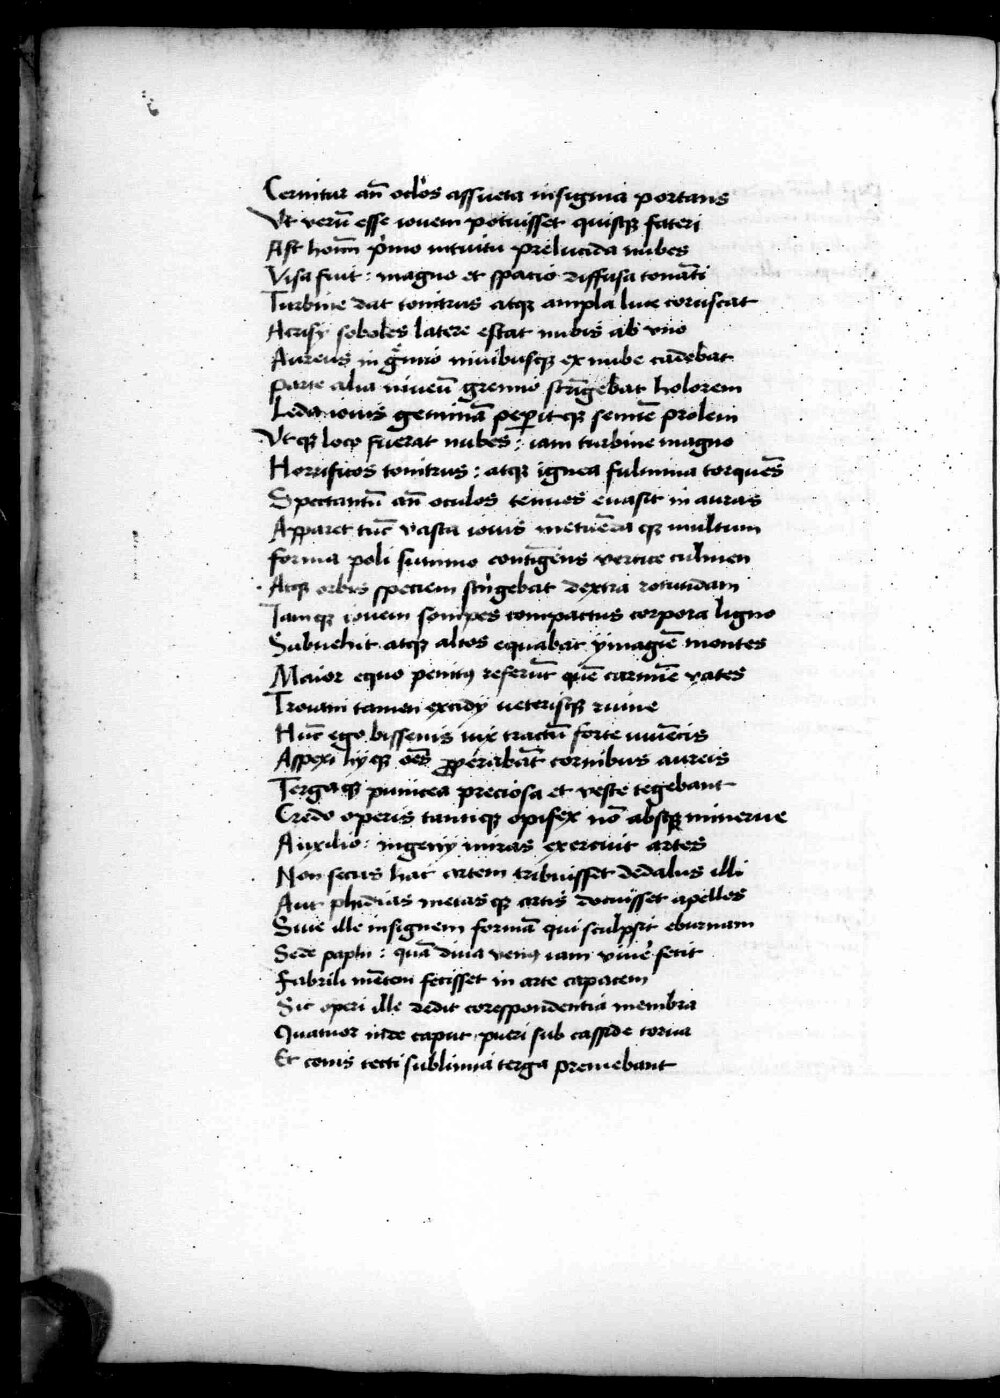 Cernitur añ ocľos assueta insignia portans
Vt verū esse iovem potuisset quisqꝫ fateri
Ast hoīm pͥmo intuitu prelucida nubes
Visa fuit : magno et spacio diffusa tonāti
Turbine dat tonitrus atqꝫ ampla luce coruscat
Acrisÿ soboles latere estat nubis ab vno
Aureus in gͥmio nivibusqꝫ ex nube cadebat
Parte alia niveū gremio strīgebat holorem
Leda iovis geminā peꝑitqꝫ semīe prolem
Vtqꝫ loco fuerat nubes : iam turbine magno
Horrificos tonitrus : atqꝫ ignea fulmina torquēs
Spectantū añ oculos tenues evasit in auras
Apparet tūc vasta iovis metuēda qꝫ multum
forma poli summo contīgens vertice culmen
Atqꝫ orbis speciem stͥngebat dextra rotundam
Tamqꝫ iovem sonipes compactus corpora ligno
Subuehit atqꝫ altos equabat ymagīe montes
Maior equo penitꝰ referūt quē carmīe vates
Troiani tamen excidÿ ueterisqꝫ ruine
Hūc ego bissenis iuxͣ tractū forte iuuēcis
Aspexi hÿqꝫ oēs ꝓperabāt cornibus aureis
Tergaqꝫ punicea preciosa et veste tegebant
Credo operis tantiqꝫ opifex nō absqꝫ minerue
Auxilio : ingenÿ miras exercuit artes
Non secus hac artem tribuisset dedalus illi
Aut phidias meiasqꝫ artis docuisset apelles
Siue ille insignem formā qui sculpsit eburnam
Sede paphi : quā diua venꝰ iam viuͤe fecit
Fabrili mētem fecisset in arte capacem
Sic operi ille dedit corespondentia membra
Quatuor inde caput pueri sub casside torua
Et conis tecti sublimia terga premebant